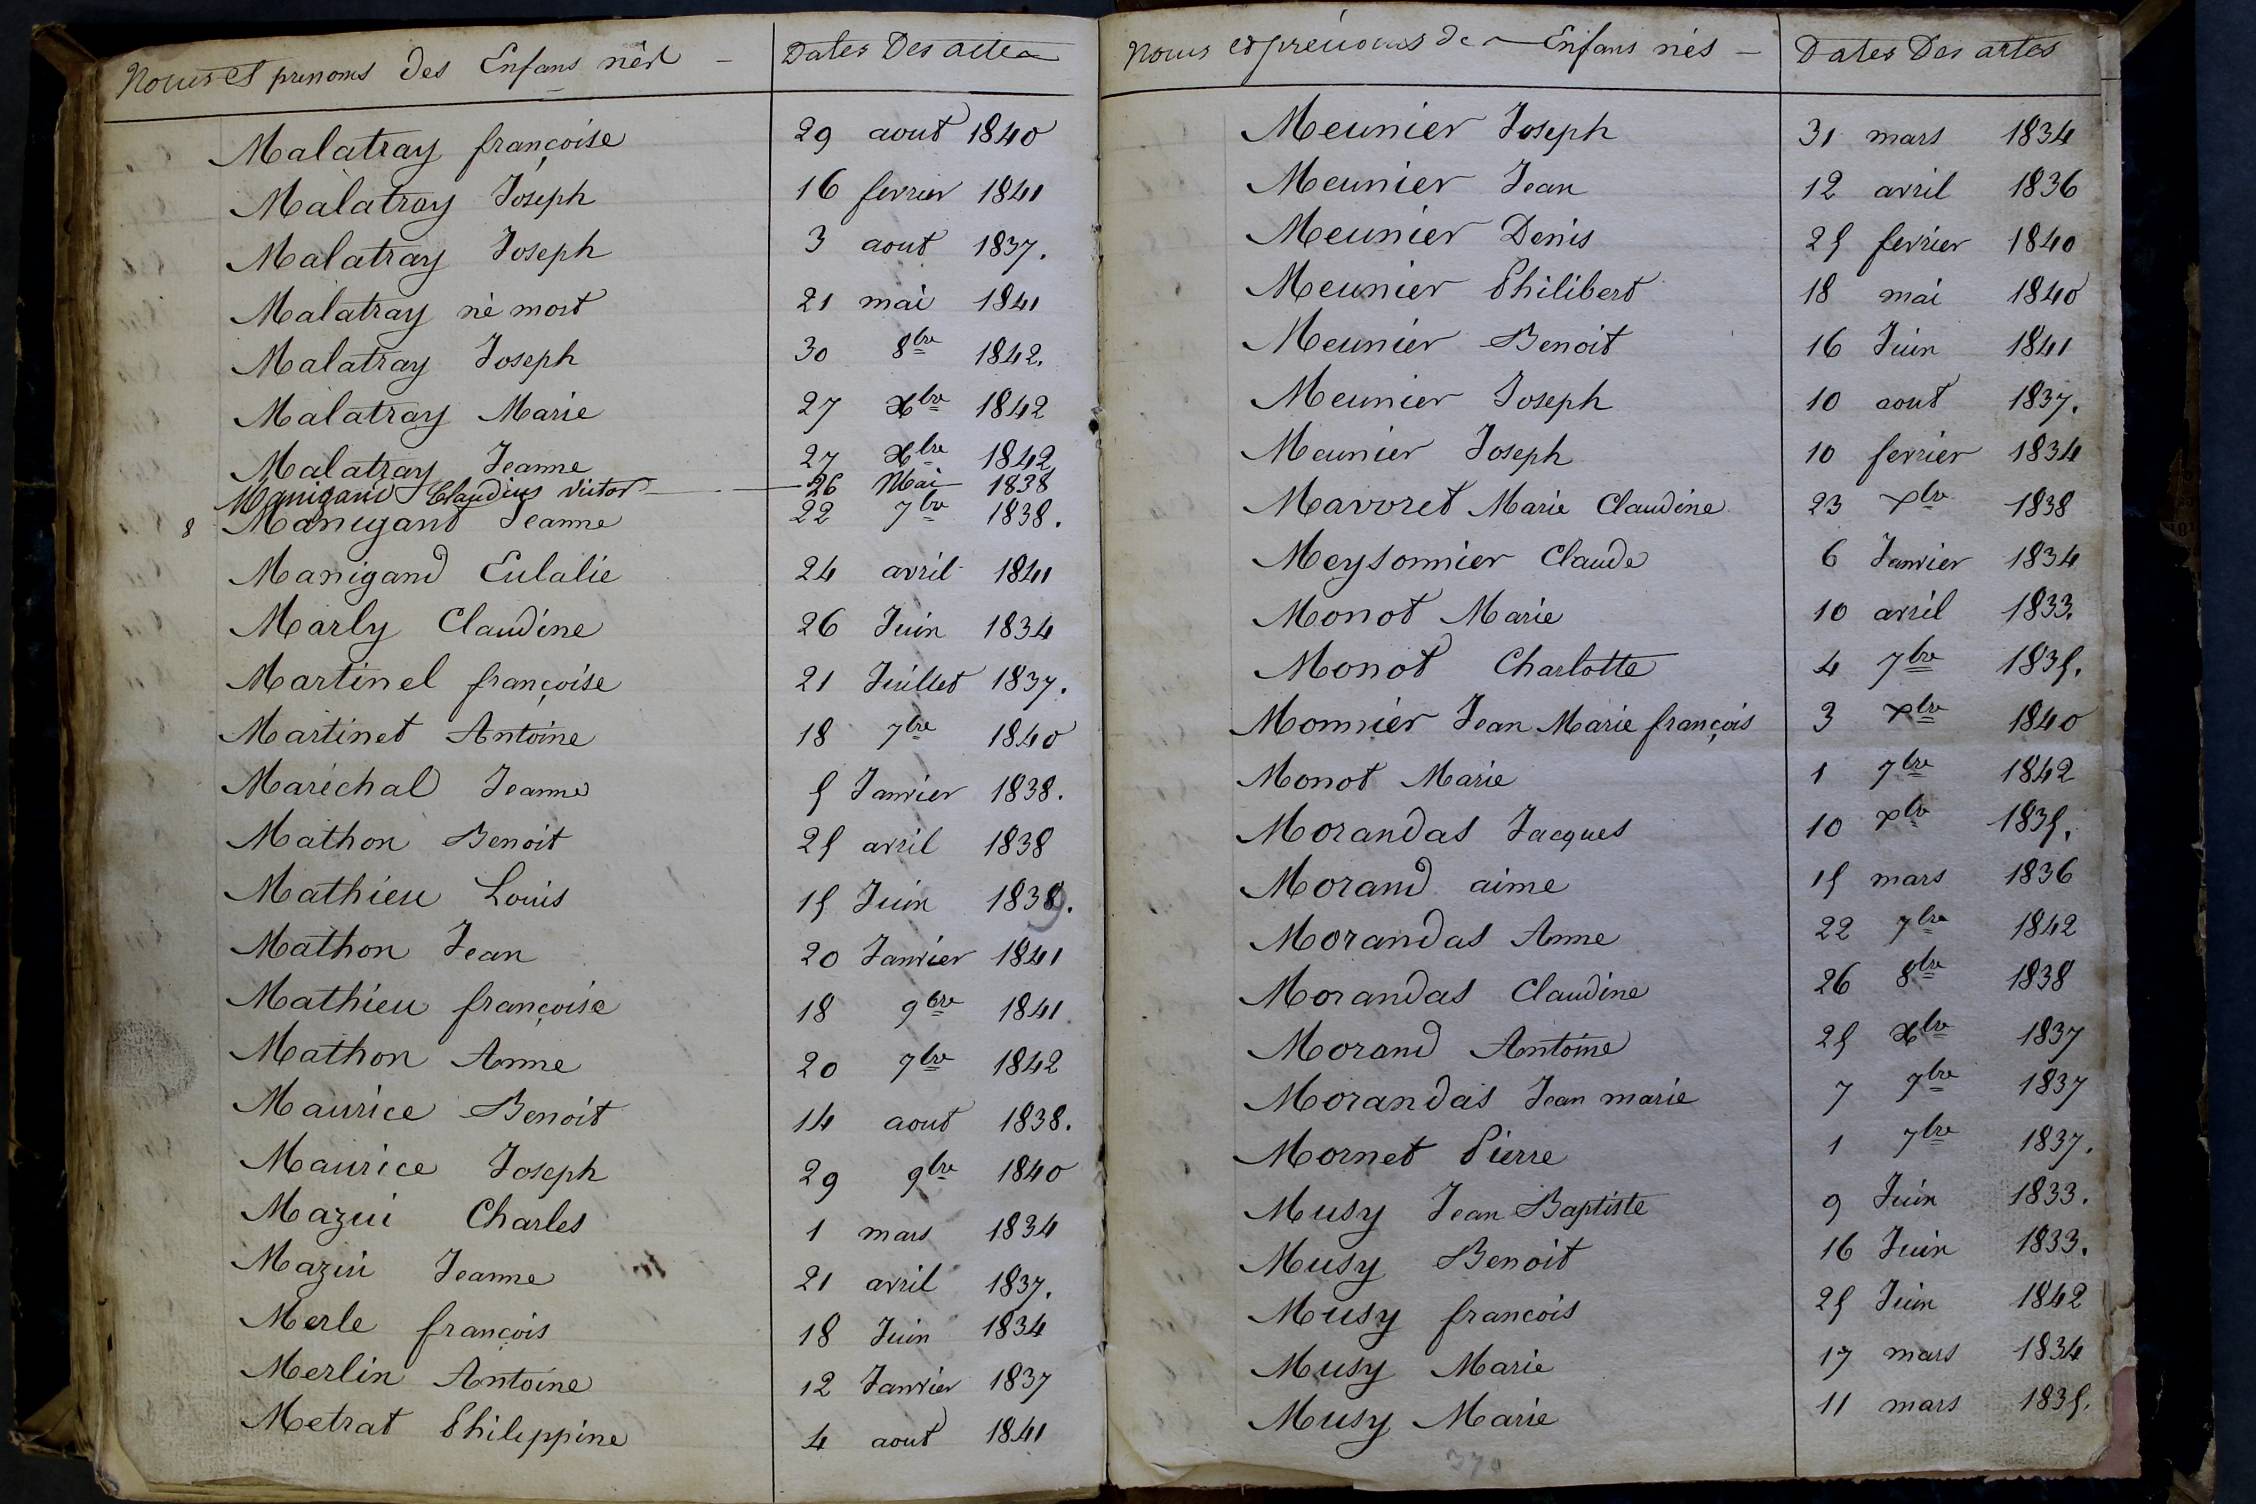 Noms et prenoms des Enfans nés — Dates Des actes
Malatray françoise 29 aout 1840
Malatray Joseph 16 fevrier 1841
Malatray Joseph 3 aout 1837.
Malatray né mort 21 mai 1841
Malatray Joseph 30 8bre 1842.
Malatray Marie 27 Xbre 1842
Malatray Jeanne 27 Xbre 1842
Manigand Claudius Victor 26 Mai 1838
8 Manigand Jeanne 22 7bre 1838.
Manigand Eulalie 24 avril 1841
Marly Claudine 26 Juin 1834
Martinel françoise 21 Juillet 1837.
Martinet Antoine 18 7bre 1840
Maréchal Jeanne 5 Janvier 1838.
Mathon Benoit 25 avril 1838
Mathieu Louis 15 Juin 1839.
Mathon Jean 20 Janvier 1841
Mathieu françoise 18 9bre 1841
Mathon Anne 20 7bre 1842
Maurice Benoit 14 aout 1838.
Maurice Joseph 29 9bre 1840
Mazui Charles 1 mars 1834
Mazui Jeanne 21 avril 1837.
Merle françois 18 Juin 1834
Merlin Antoine 12 Janvier 1837
Metrat Philippine 4 aout 1841
Noms et prénoms des Enfans nés — Dates Des actes
Meunier Joseph 31 mars 1834
Meunier Jean 12 avril 1836
Meunier Denis 25 fevrier 1840
Meunier Philibert 18 mai 1840
Meunier Benoit 16 Juin 1841
Meunier Joseph 10 aout 1837.
Meunier Joseph 10 fevrier 1834
Mavoret Marie Claudine 23 Xbre 1838
Meysonnier Claude 6 Janvier 1834
Monot Marie 10 avril 1833.
Monot Charlotte 4 7bre 1835.
Monnier Jean Marie françois 3 Xbre 1840
Monot Marie 1 7bre 1842
Morandas Jacques 10 Xbre 1835.
Morand aime 15 mars 1836
Morandas Anne 22 7bre 1842
Morandas Claudine 26 8bre 1838
Morand Antoine 25 Xbre 1837
Morandas Jean marie 7 7bre 1837
Mornet Pierre 1 7bre 1837.
Musy Jean Baptiste 9 Juin 1833.
Musy Benoit 16 Juin 1833.
Musy francois 25 Juin 1842
Musy Marie 17 mars 1834
Musy Marie 11 mars 1835.
370